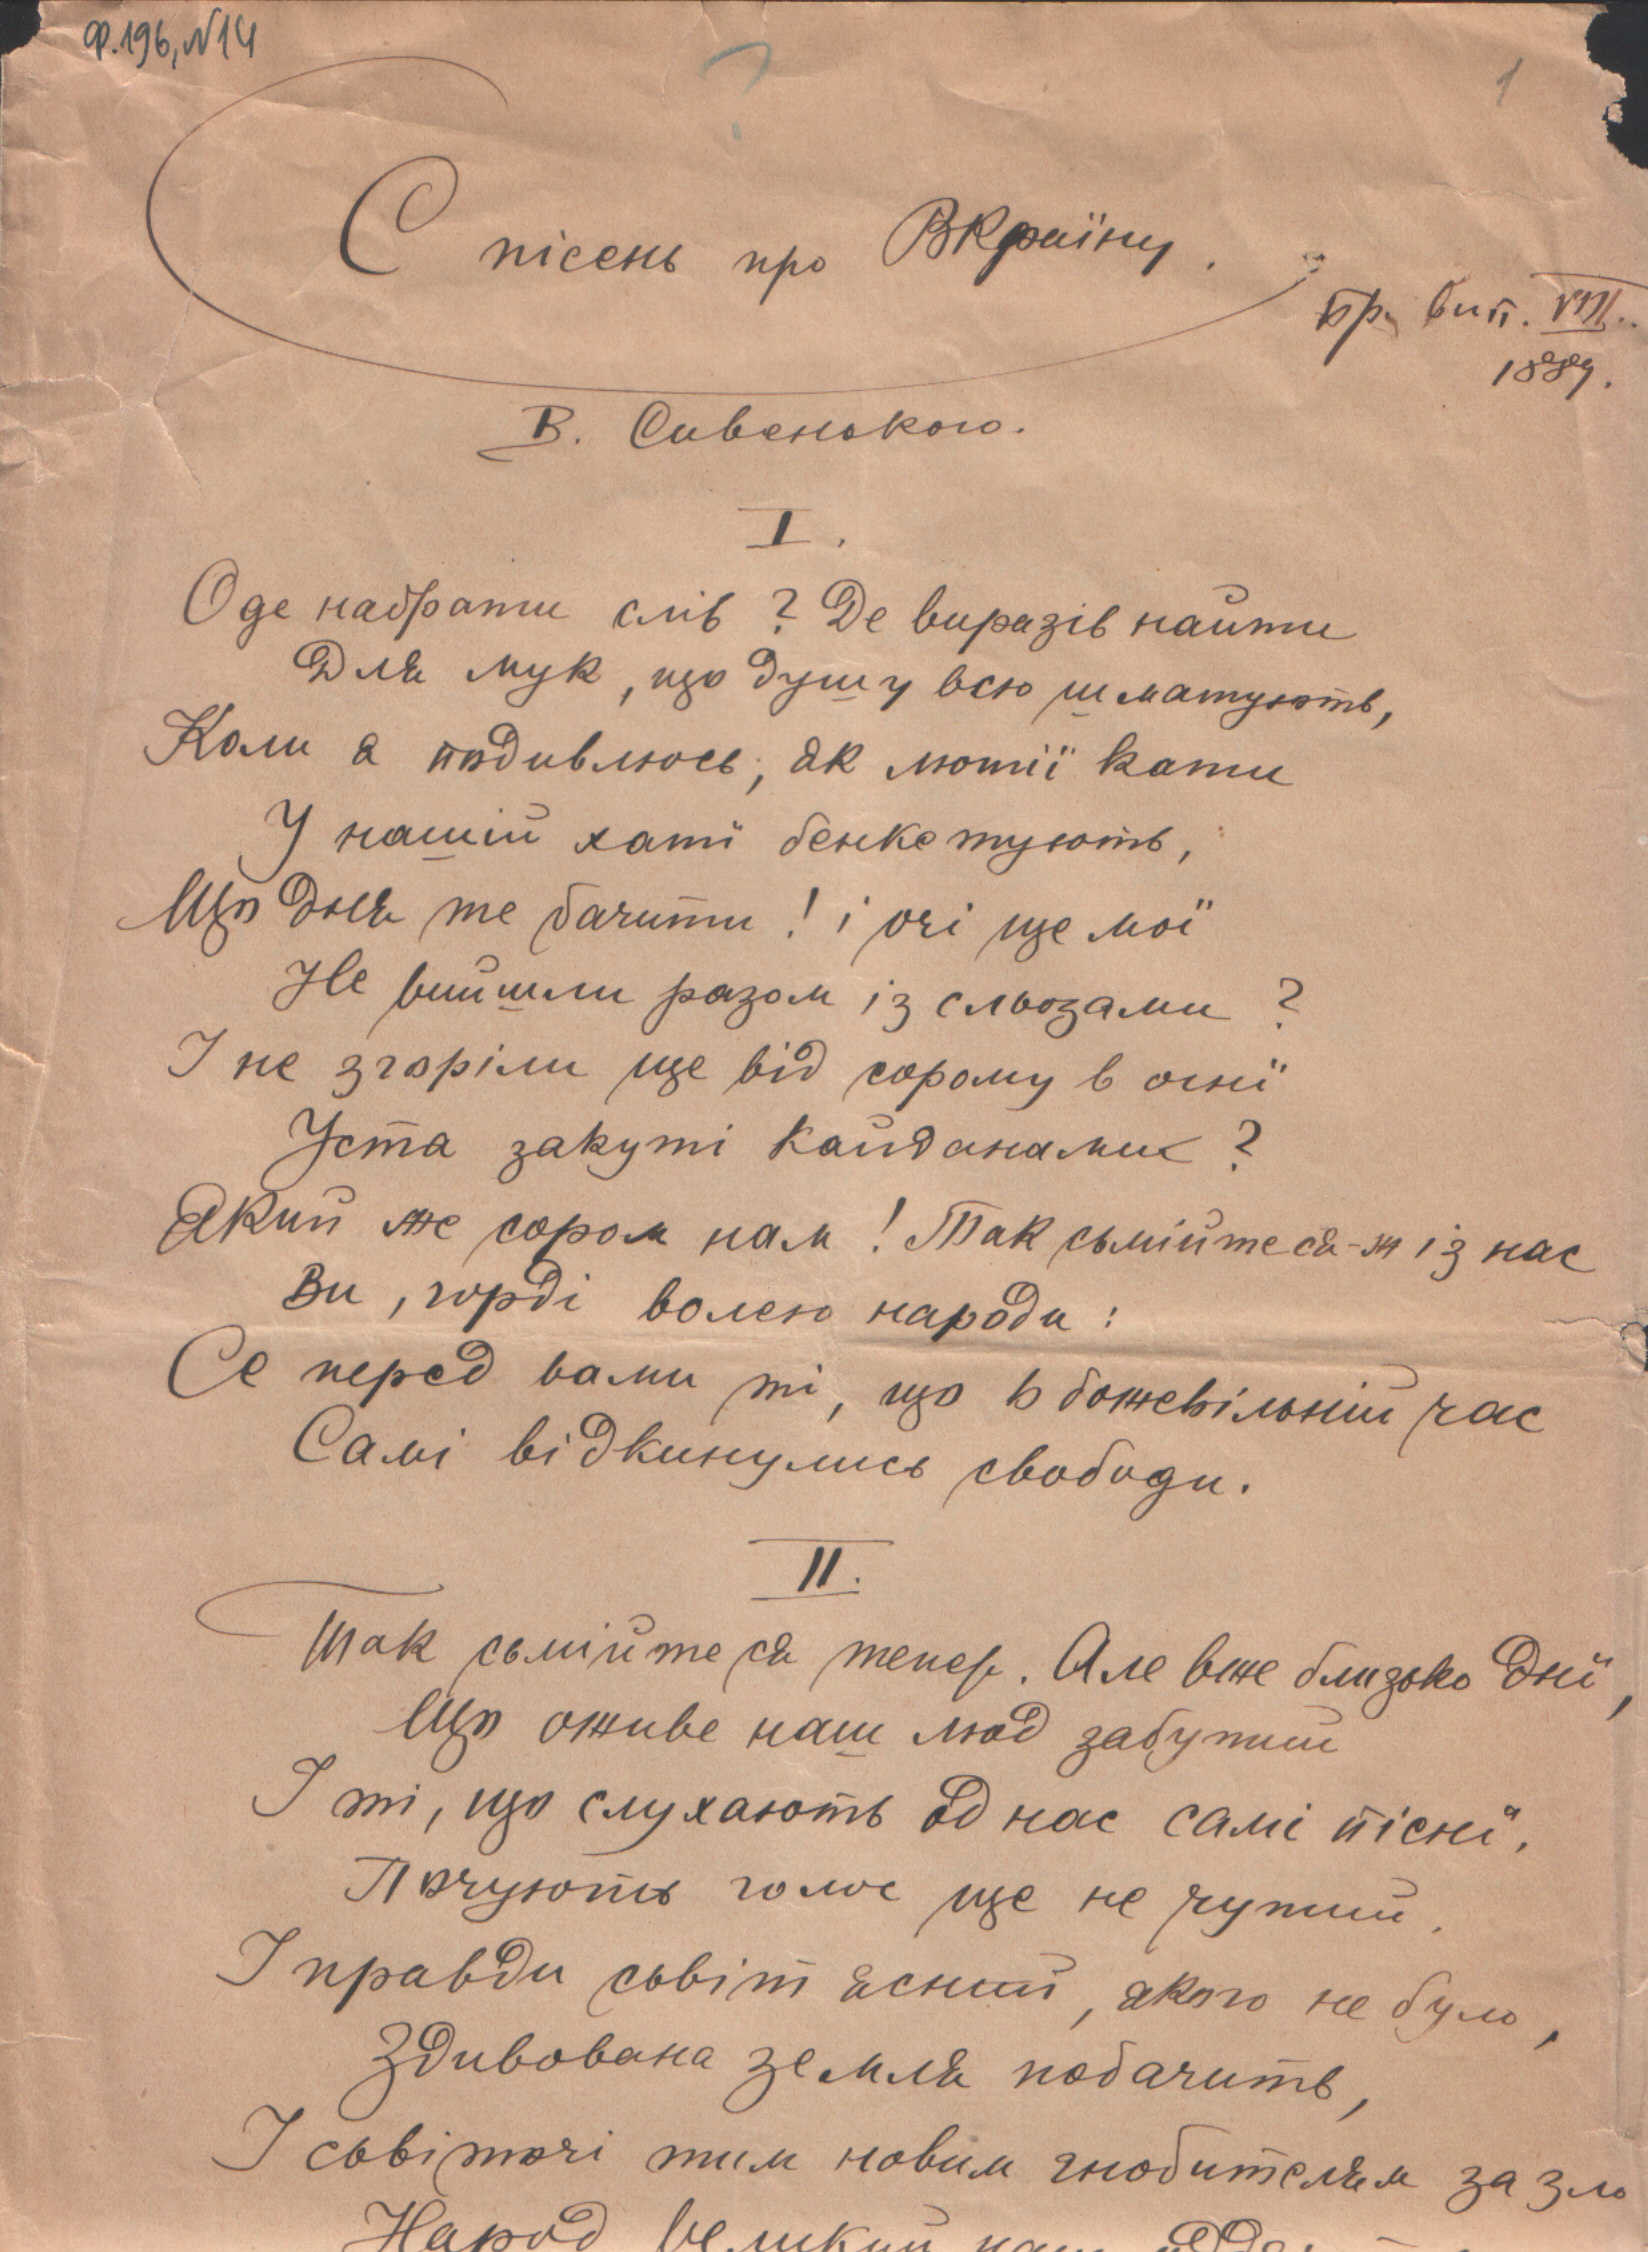 Ф.196, N14
1
С пісень про Вкраїну.
Пр. вип. VIII.
1889.
В. Сивенького.
I.
Оде набрати слів? Де виразів найти
Для мук, що душу всю шматують,
Коли я подивлюсь, як лютії кати
У нашій хаті бенкетують,
Що дня те бачити! і очі ще мої
Не вийшли разом із сльозами?
І не згоріли ще від сорому в огнї
Уста закуті кайданами?
Який же сором нам! Так сьмійте ся-ж із нас
Ви, горді волею народи:
Се перед вами ті, що в божевільний час
Самі відкинулись свободи.
II.
Так сьмійте ся тепер. Але вже близько днї,
Що оживе наш люд забутий
І ті, що слухають од нас самі піснї,
Почують голос ще не чутий.
І правди сьвіт ясний, якого не було,
Здивована земля побачить,
І сьвіточі тим новим гнобителям за зло
Народ великий наш